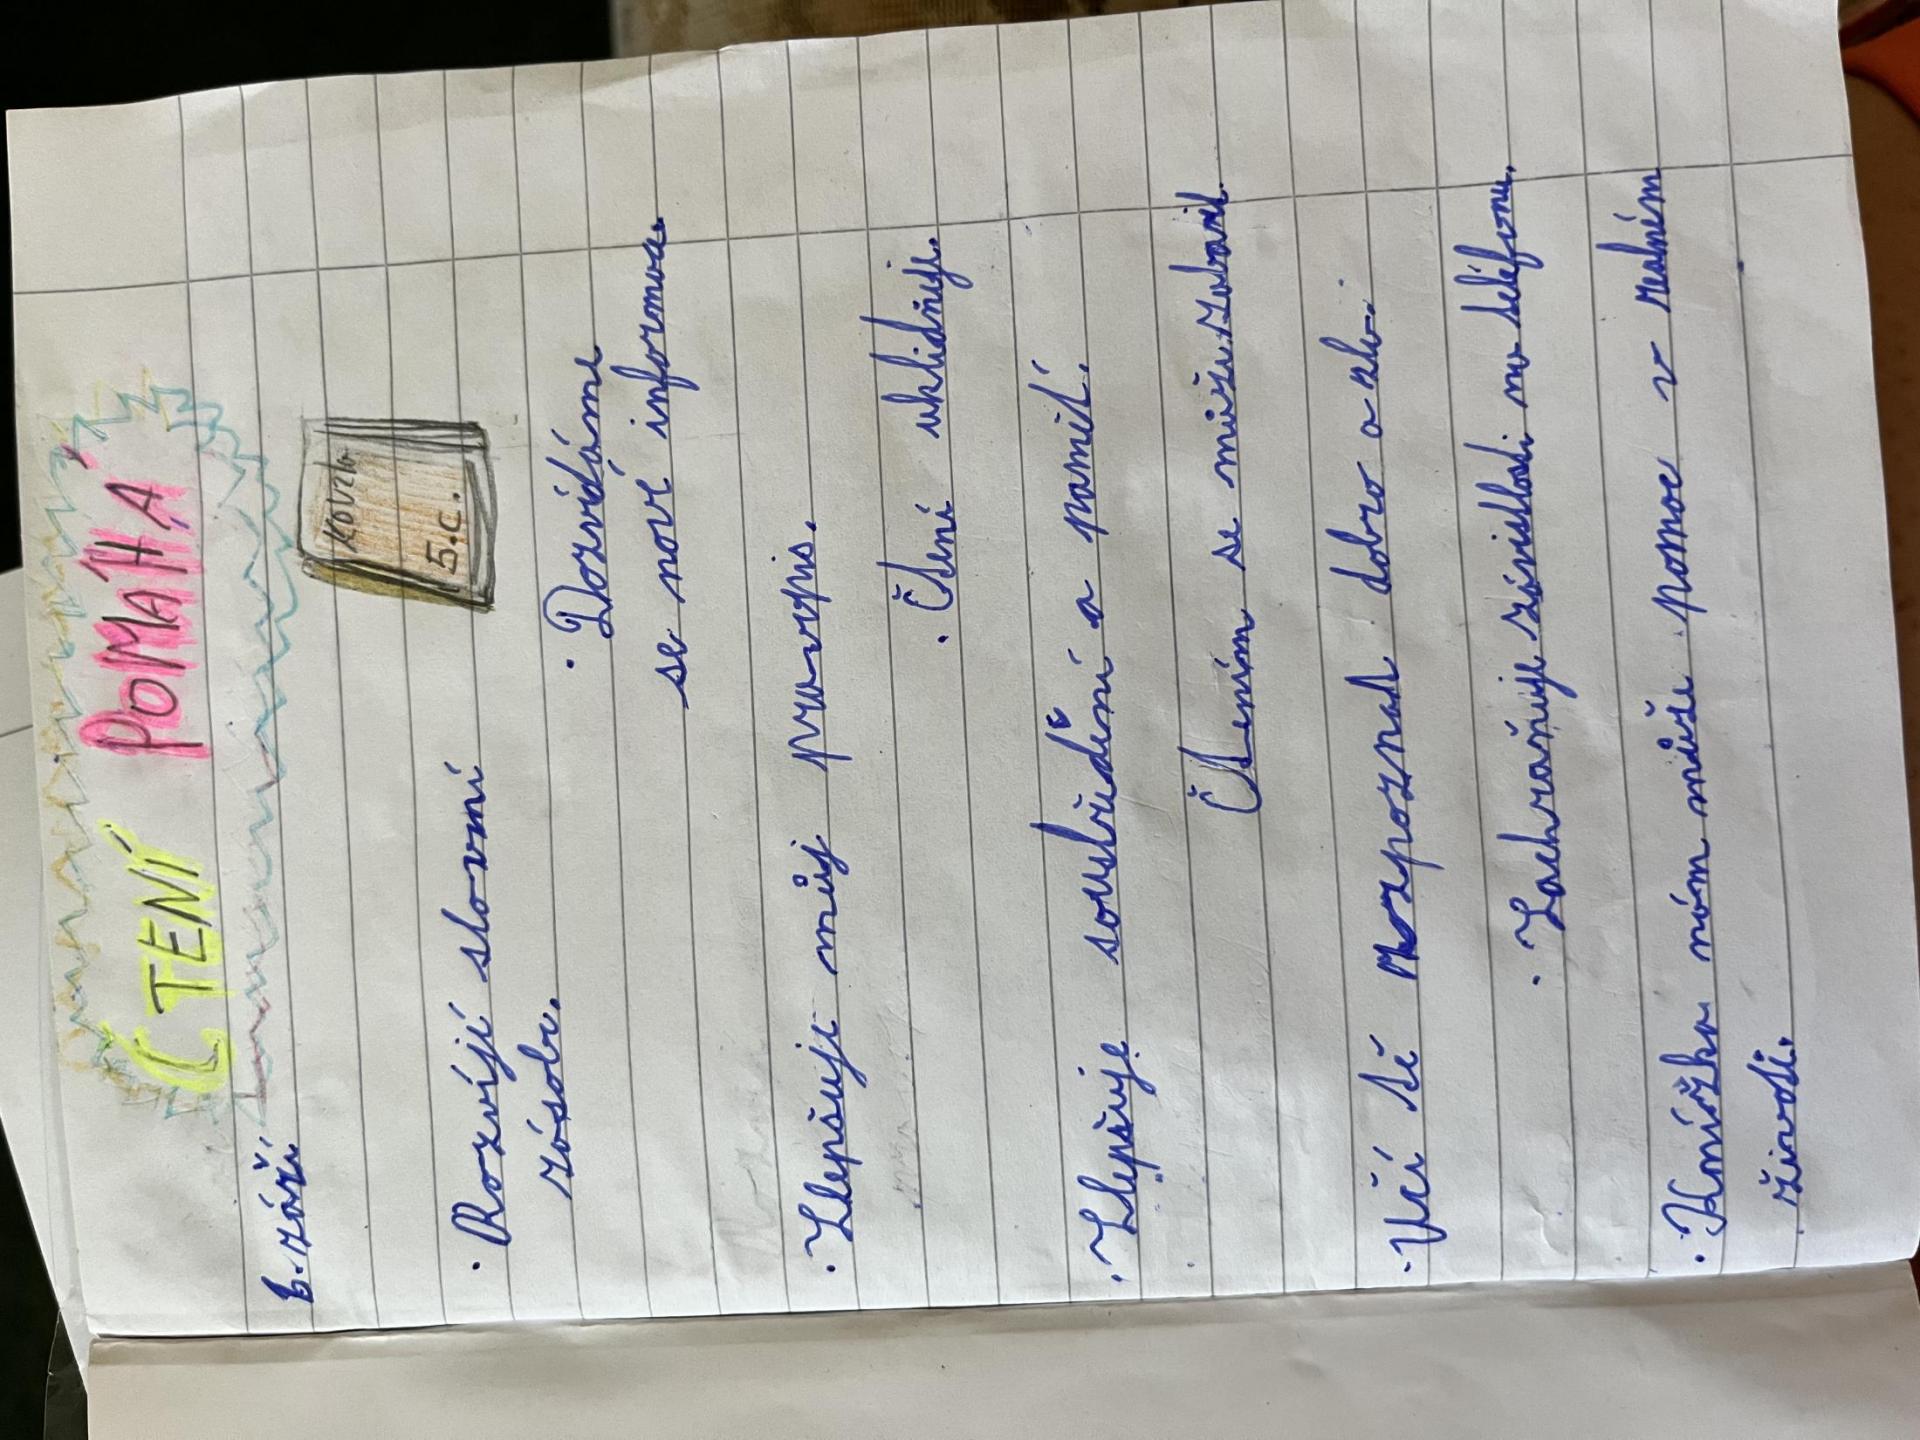 ČTENÍ POMÁHÁ
6. září
KOUZLO
5.C.
· Rozvíjí slovní
zásobu.
· Dozvídáme
se nové informace.
· Zlepšuji můj pravopis.
· Čtení uklidňuje.
· Zlepšuje soustředění a paměť.
Čtením se může zabavit.
· Učí tě rozpoznat dobro a zlo.
· Zachraňuje závislosti na teléfonu.
· Knížka nám může pomoc v reálném
životě.